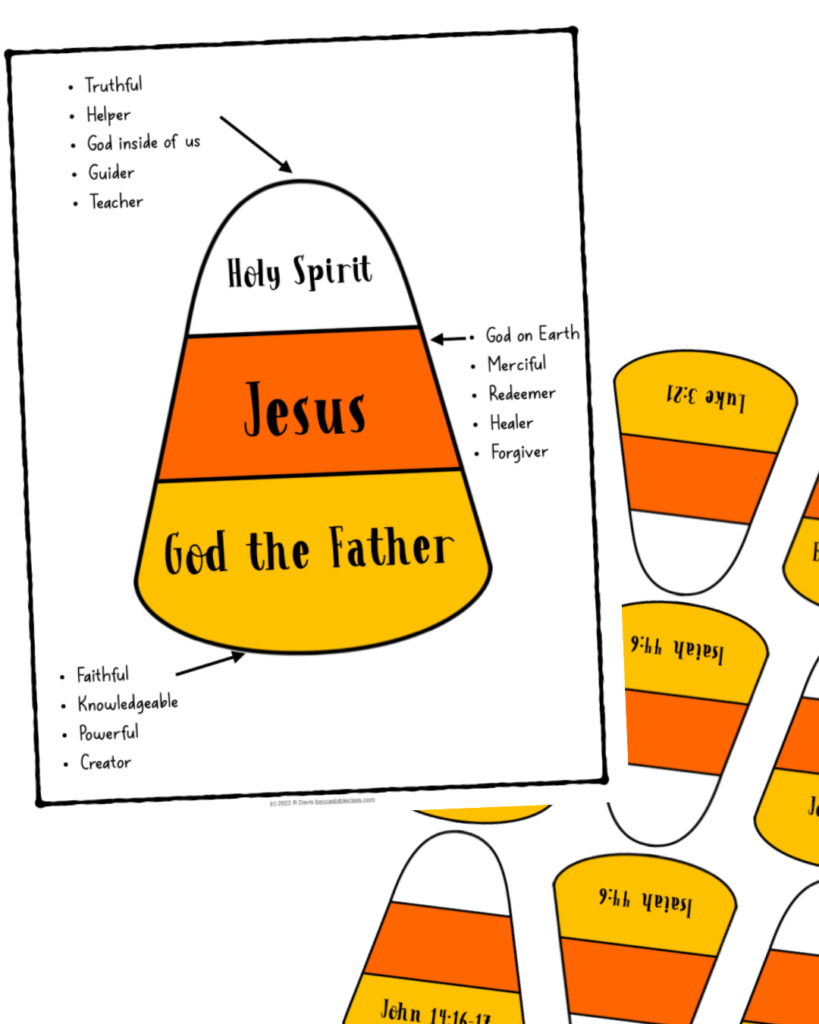 • Truthful
• Helper
• God inside of us
• Guider
• Teacher
Holy Spirit
• God on Earth
• Merciful
• Redeemer
• Healer
• Forgiver
Jesus
God the Father
• Faithful
• Knowledgeable
• Powerful
• Creator
(c) 2022 R Davis beccasbibleclass.com
Luke 3:21
Isaiah 44:6
Isaiah 44:6
John 14:16-17